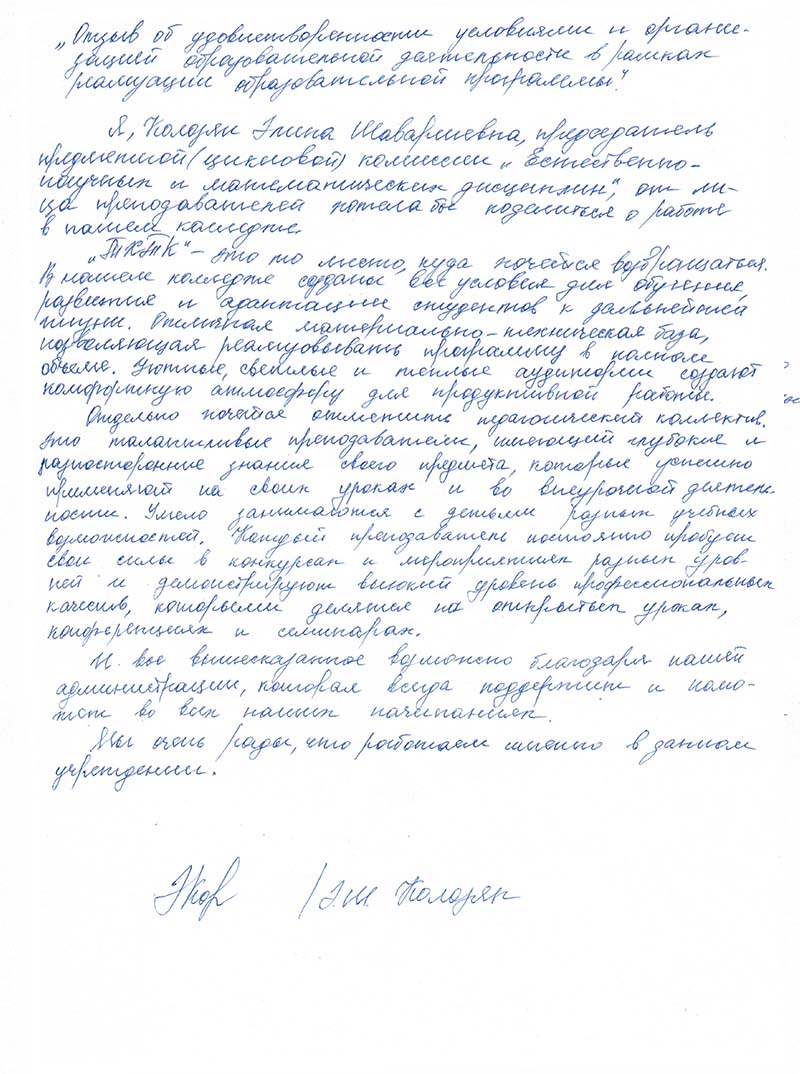 „Отзыв об удовлетворенности условиями и органи-
зацией образовательной деятельности в рамках
реализации образовательной программы".
Я, Колозян Элина Шаваршевна, председатель
предметной (цикловой) комиссии „Естественно-
научных и математических дисциплин", от ли-
ца преподавателей хотела бы поделиться о работе
в нашем колледже.
„ТКТК" – это то место, куда хочется возвращаться.
В нашем колледже созданы все условия для обучения
развития и адаптации студентов к дальнейшей
жизни. Отличная материально-техническая база,
позволяющая реализовывать программу в полном
объеме. Уютные, светлые и теплые аудитории создают
комфортную атмосферу для продуктивной работы.
Отдельно хочется отметить педагогический коллектив.
Это талантливые преподаватели, имеющий глубокие и
разносторонние знания своего предмета, которые успешно
применяют на своих уроках и во внеурочной деятель-
ности. Умело занимаются с детьми разных учебных
возможностей. Каждый преподаватель постоянно пробует
свои силы в конкурсах и мероприятиях разных уров-
ней и демонстрируют высокий уровень профессиональных
качеств, которыми делятся на открытых уроках,
конференциях и семинарах.
И все вышесказанное возможно благодаря нашей
администрации, которая всегда поддержит и помо-
жет во всех наших начинаниях.
Мы очень рады, что работаем именно в данном
учреждении.
/Э.Ш. Колозян